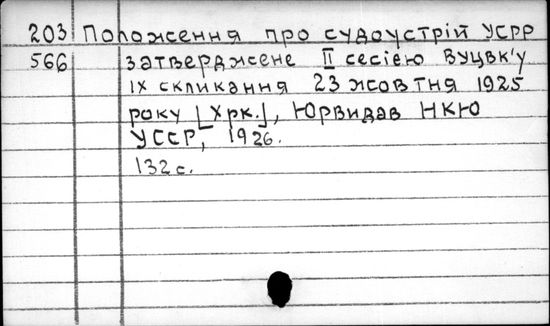 203 Положення про судоустрій УСРР
566 затверджене II сесією ВУЦВК'у
IX скликання 23 жовтня 1925
року [Хрк.], Юрвидав НКЮ
УССР, 1926.
132 с.